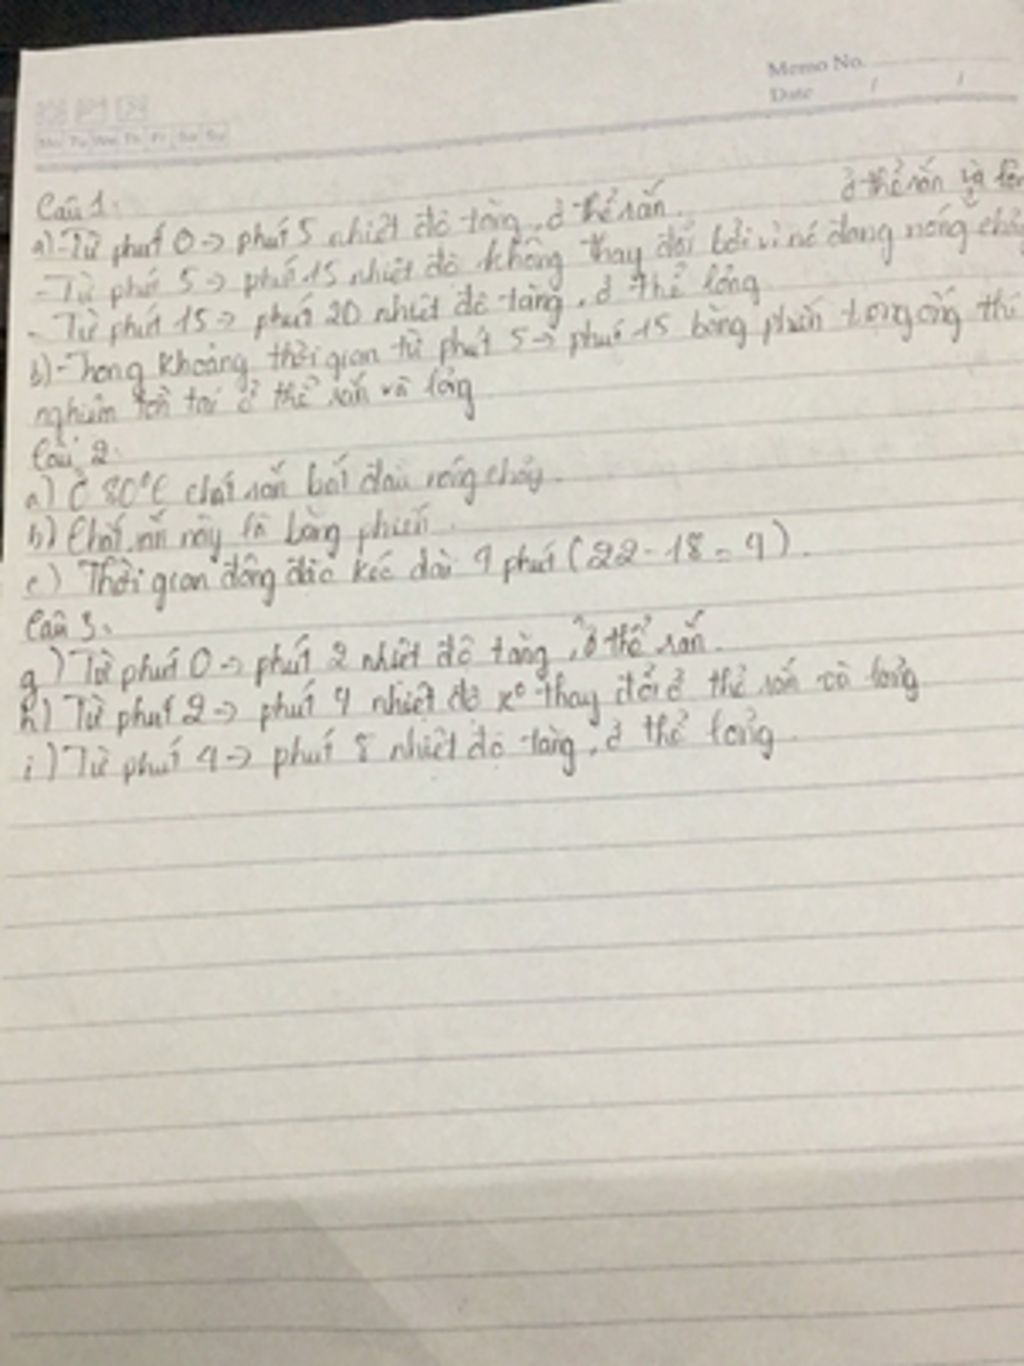 Memo No.
Date / /
Mo Tu We Th Fr Sa Su
Câu 1:
a) - Từ phút 0 -> phút 5 nhiệt độ tăng, ở thể rắn. ở thể rắn và
- Từ phút 5 -> phút 15 nhiệt độ không thay đổi bởi vì nó đang nóng chảy
- Từ phút 15 -> phút 20 nhiệt độ tăng, ở thể lỏng
b) - Trong khoảng thời gian từ phút 5 -> phút 15 băng phiến trong ống thí
nghiệm tồn tại ở thể rắn và lỏng
Câu 2:
a) Ở 80°C chất rắn bắt đầu nóng chảy.
b) Chất rắn này là băng phiến.
c) Thời gian đông đặc kéo dài 4 phút (22 - 18 = 4).
Câu 3:
g) Từ phút 0 -> phút 2 nhiệt độ tăng, ở thể rắn.
h) Từ phút 2 -> phút 4 nhiệt độ k° thay đổi ở thể rắn và lỏng
i) Từ phút 4 -> phút 8 nhiệt độ tăng, ở thể lỏng.